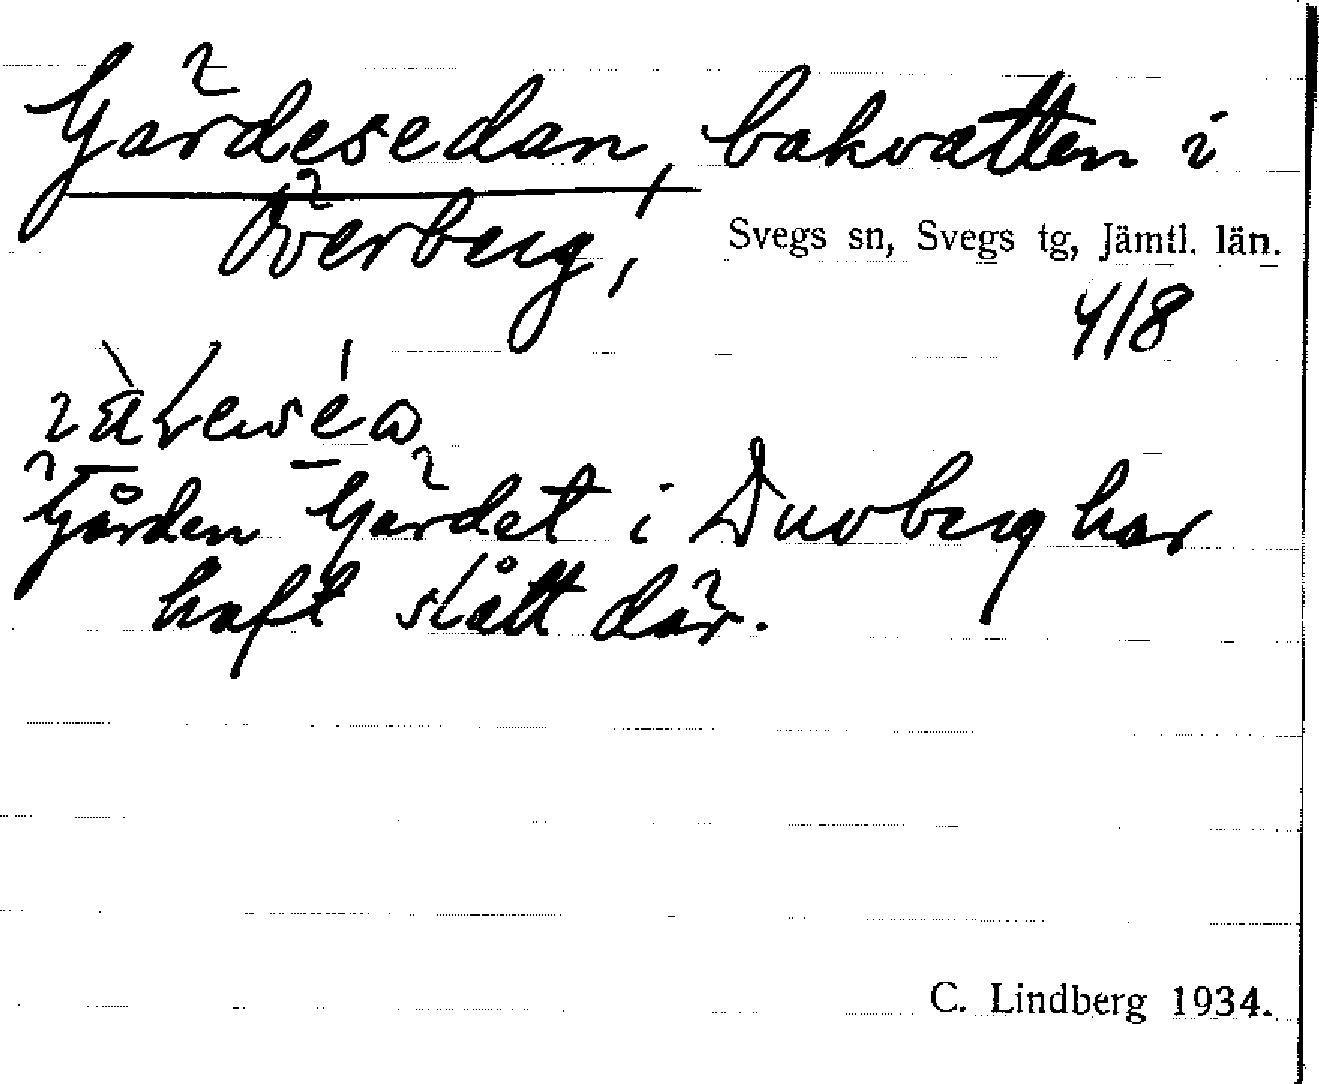 Gärdesedan, bakvatten i
Överberg,
Svegs sn, Svegs tg, Jämtl. län.
418
Gården Gärdet i Duvberg har
haft slått där.
C. Lindberg 1934.